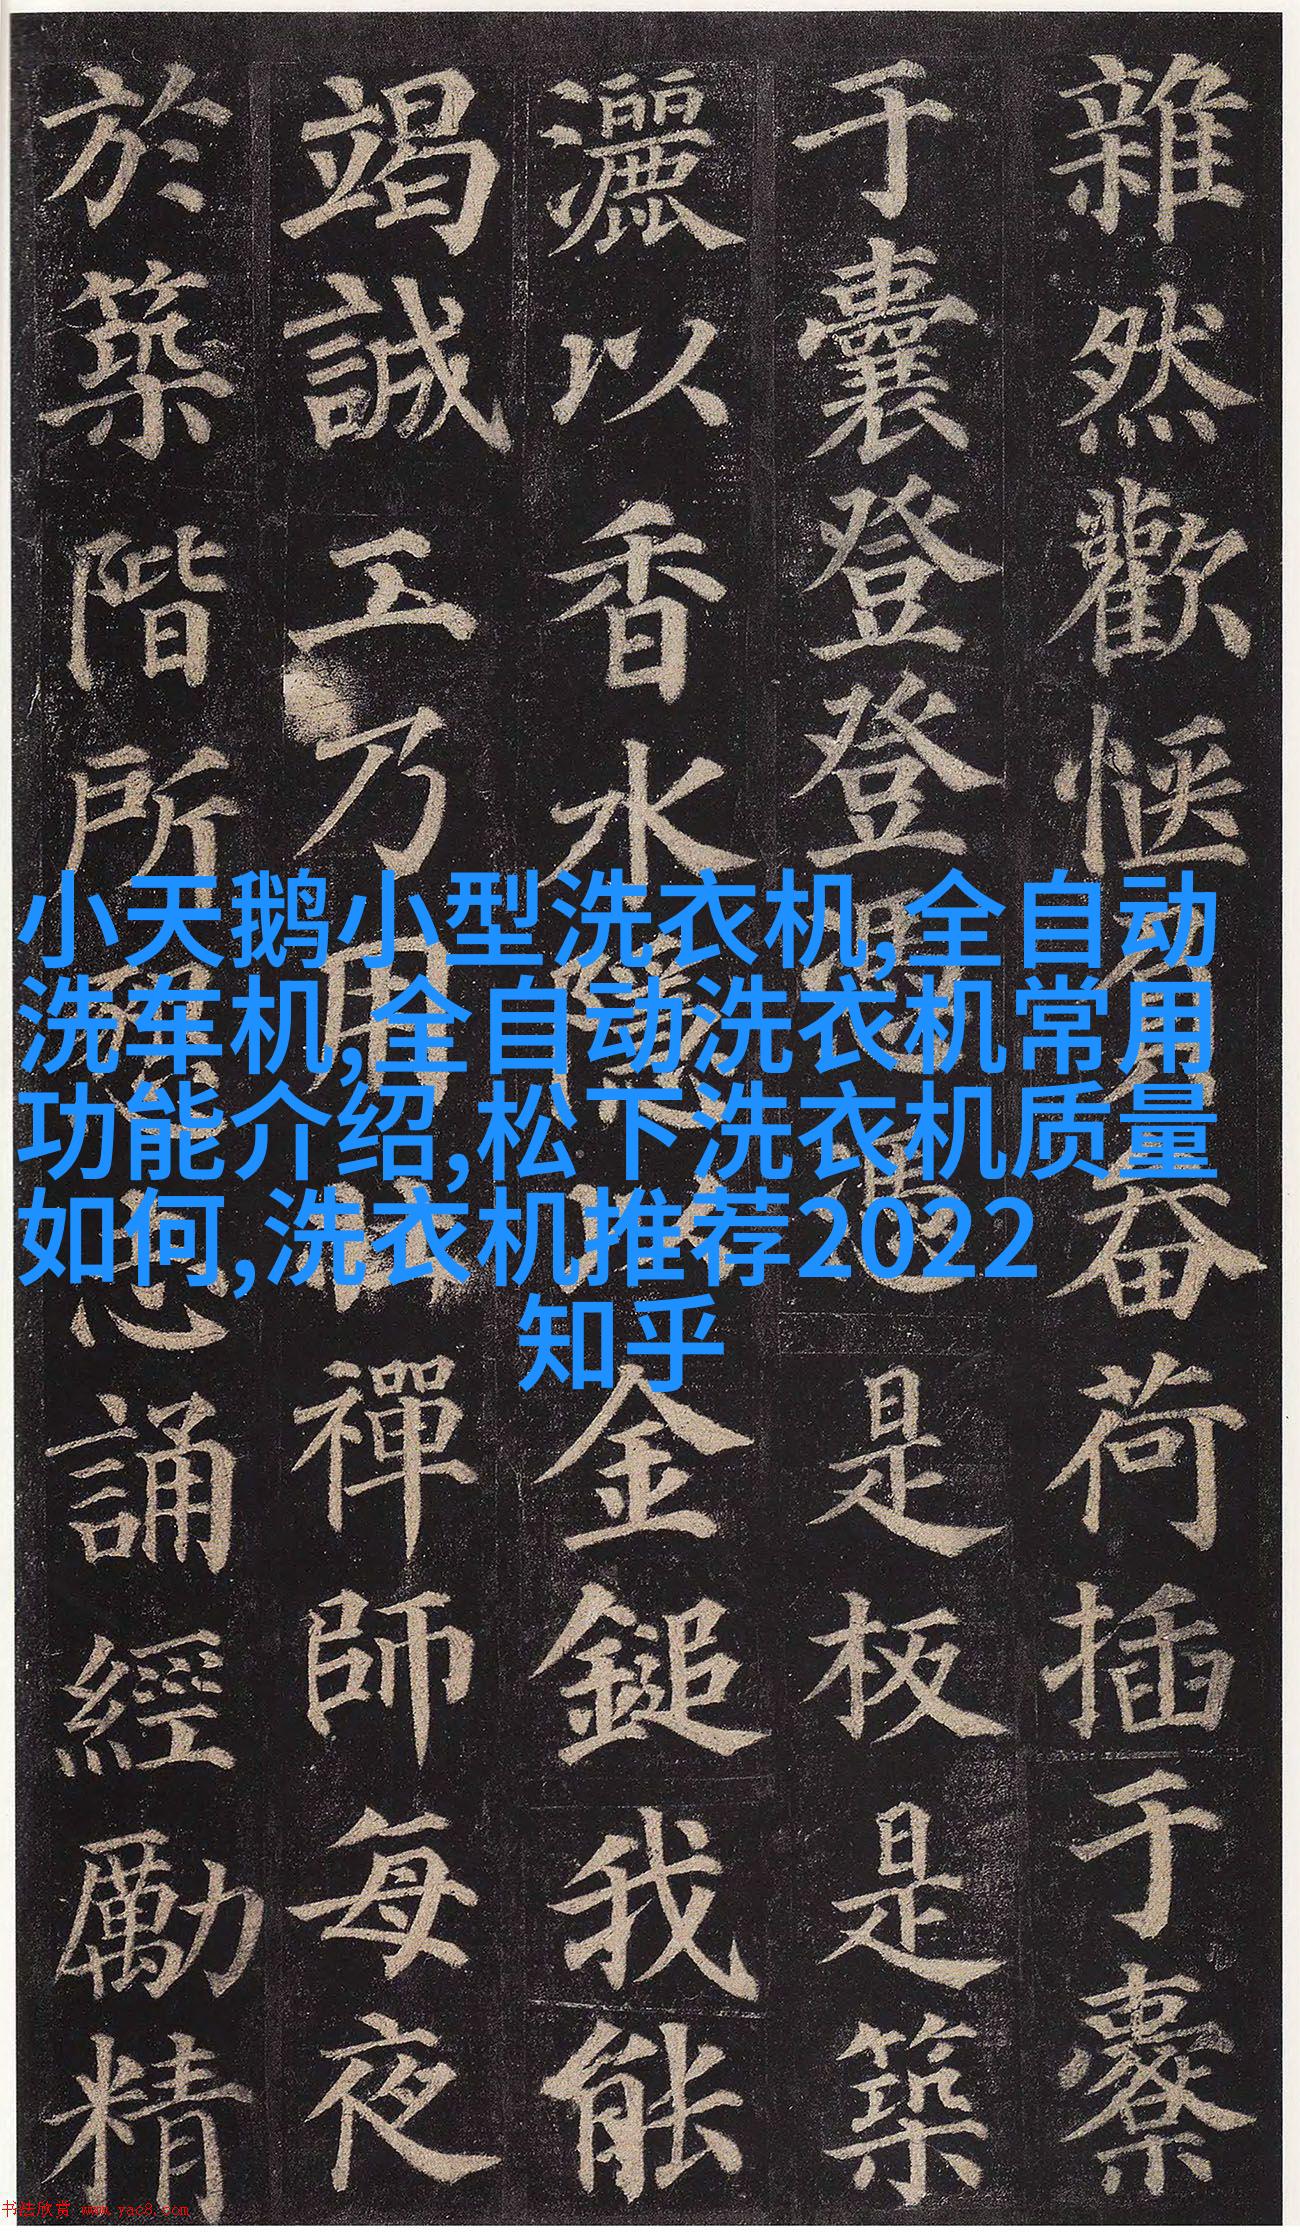 雜然歡愜負畚荷插于橐
于囊登登憑憑是板是築
灑以香水隱以金鎚我能
竭誠工乃用禪師每夜
於築階所懇志誦經勵精
小天鹅小型洗衣机,全自动
洗车机,全自动洗衣机常用
功能介绍,松下洗衣机质量
如何,洗衣机推荐2022
知乎
书法欣赏 www.yac8.com